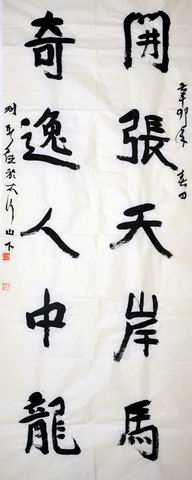 開張天岸馬
奇逸人中龍
辛卯年春日
於太行山下